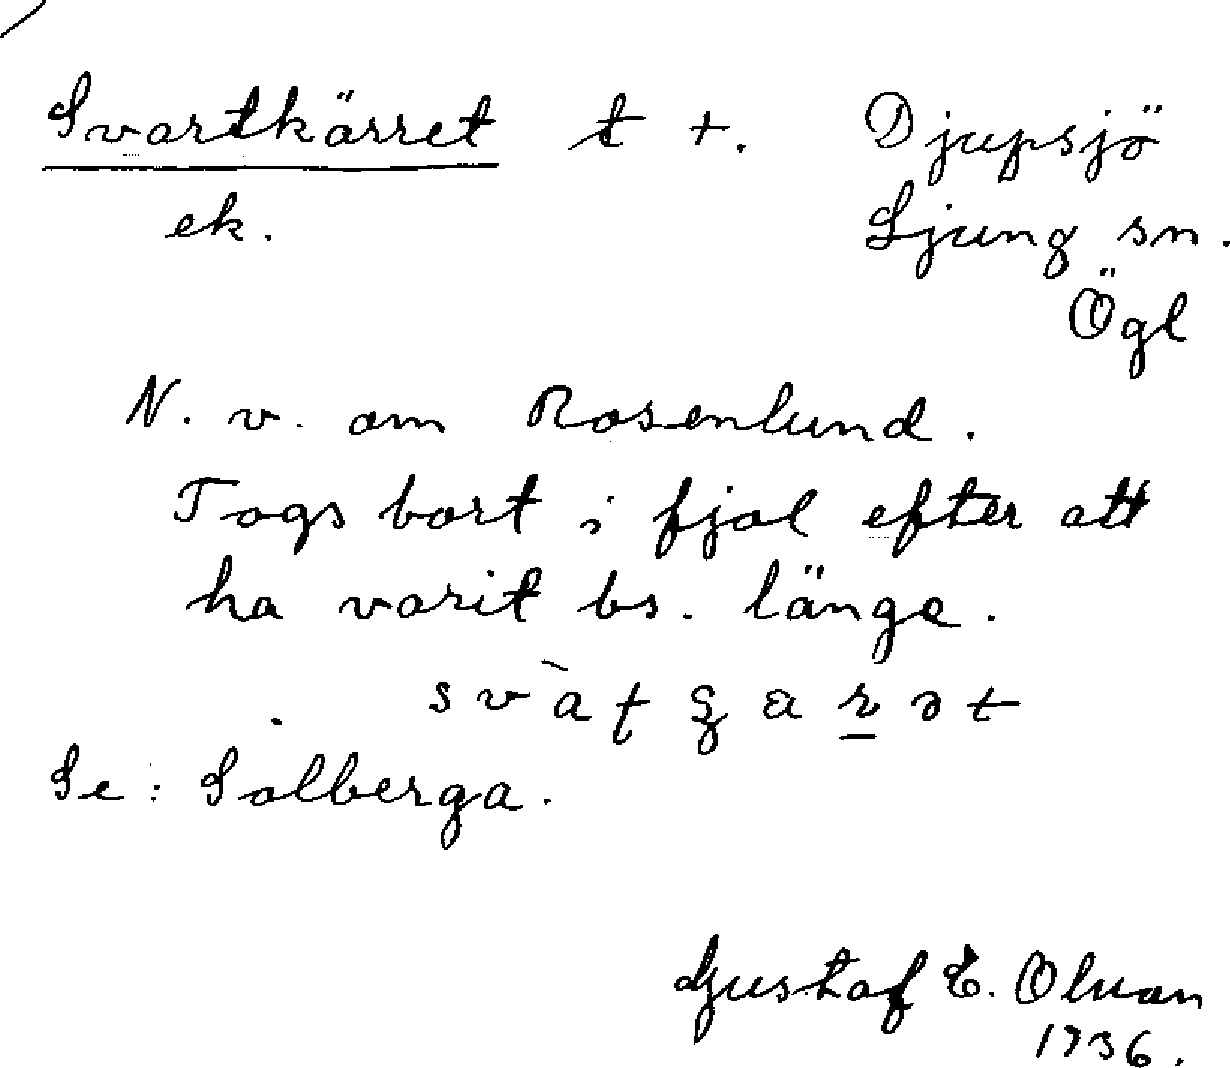 Svartkärret t +. Djupsjö
ek. Ljung sn.
Ögl
N. v. om Rosenlund.
Togs bort i fjol efter att
ha varit bs. länge.
Se: Solberga.
Gustaf E. Olman
1936.